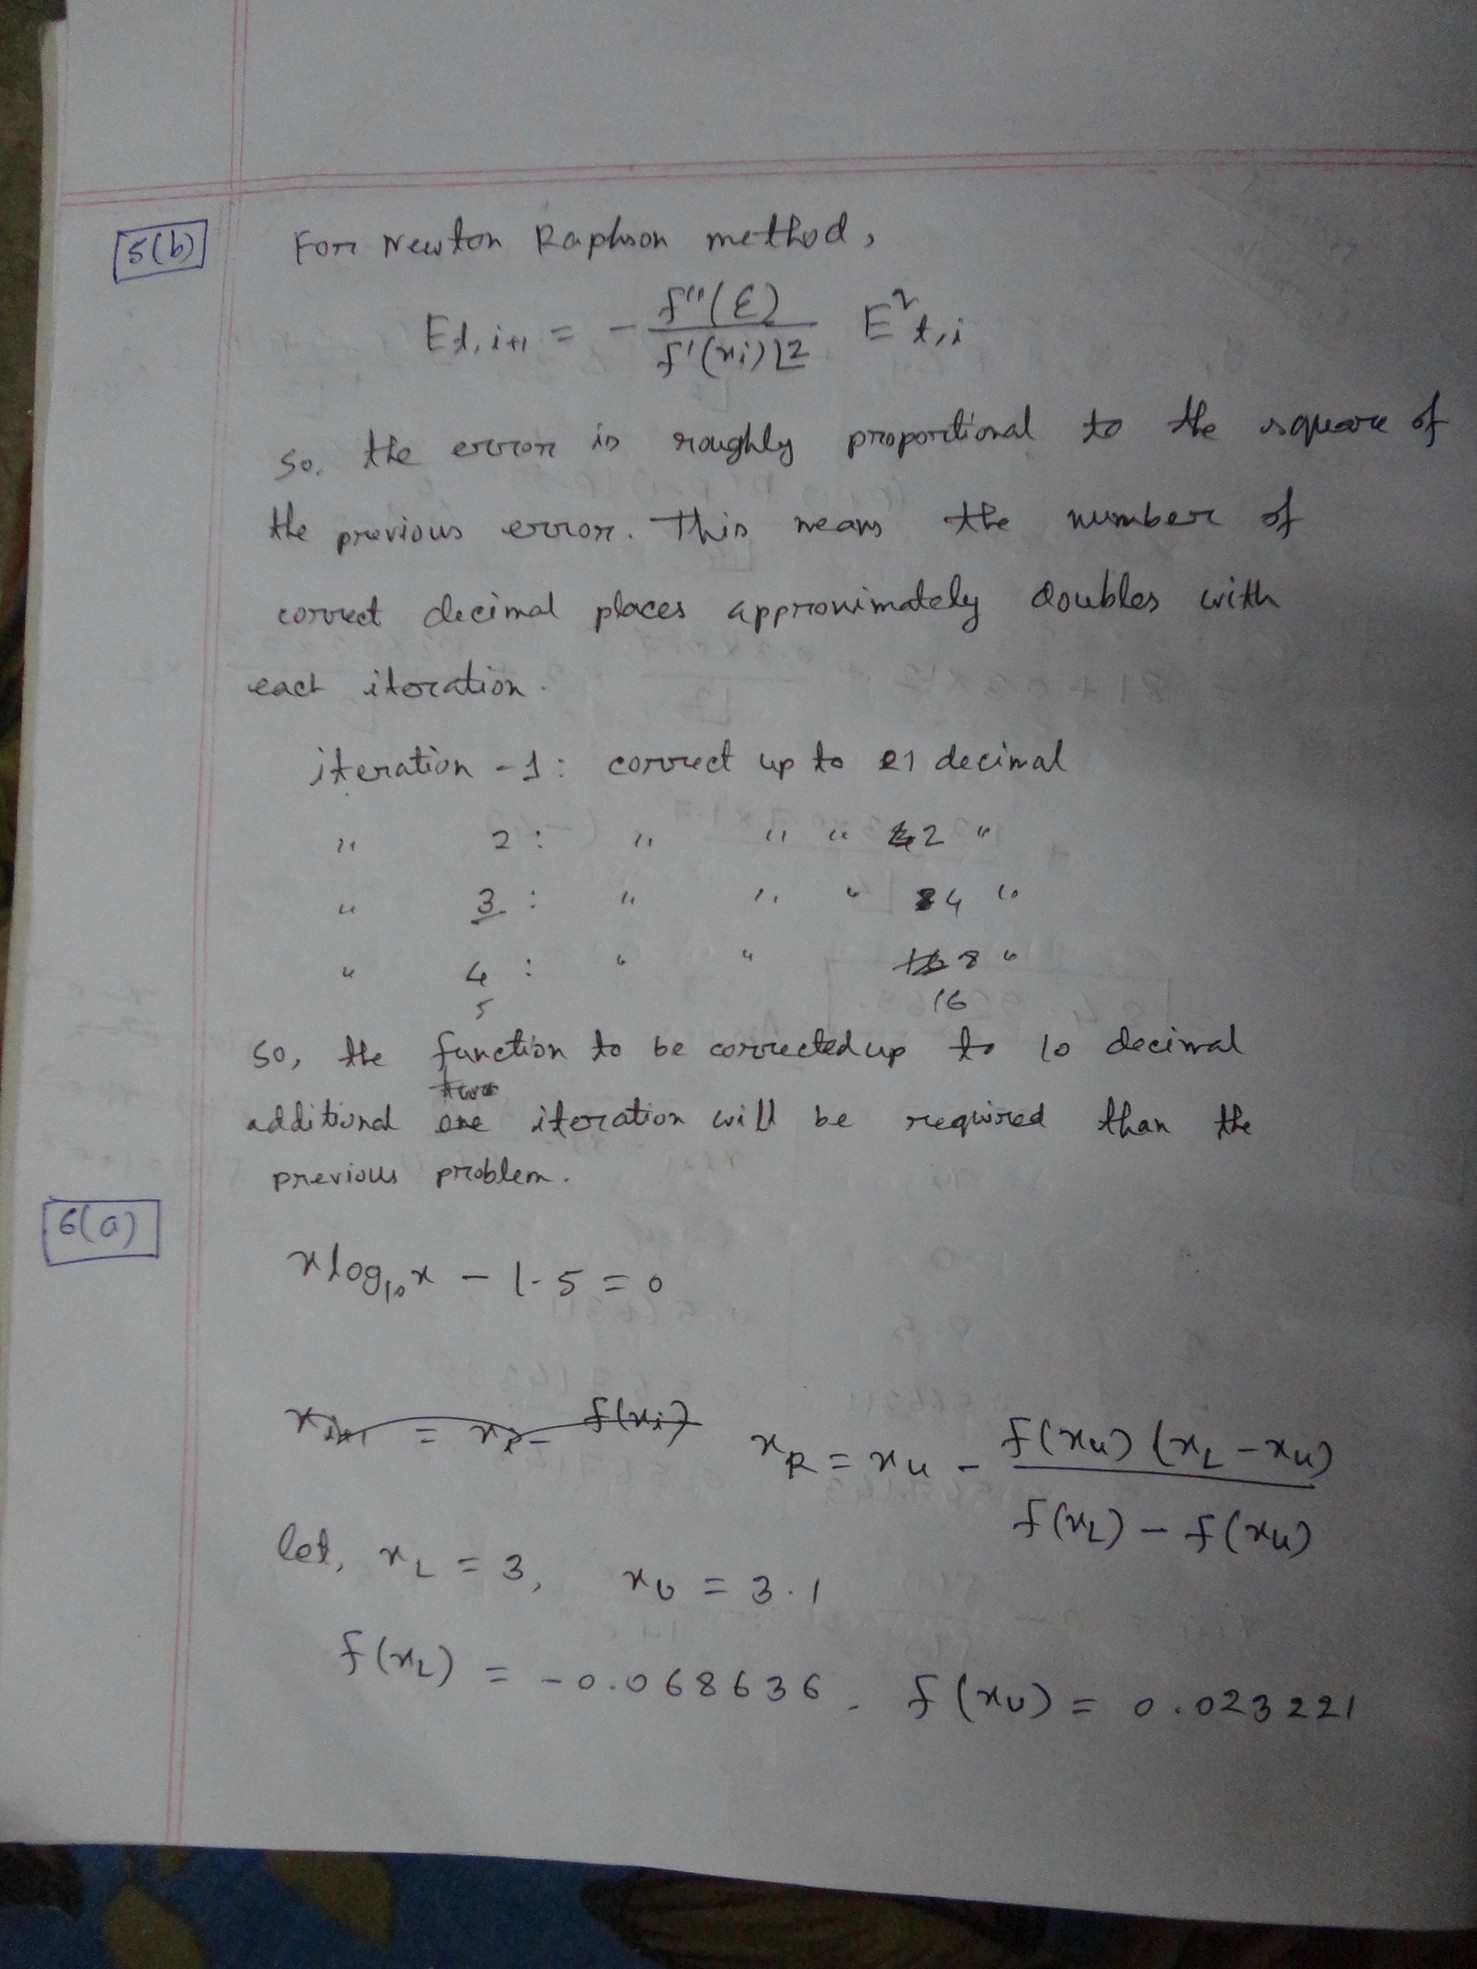 5(b) For Newton Raphson method,
E_t,i+1 = - f''(ξ) / f'(xi)⌊2 E²t,i
So, the error is roughly proportional to the square of
the previous error. This means the number of
correct decimal places approximately doubles with
each iteration.
iteration - 1: correct up to 1 decimal
" 2: " " " 2 "
" 3: " " " 4 "
" 4: " " 8 "
5 16
So, the function to be corrected up to 10 decimal
two
additional one iteration will be required than the
previous problem.
6(a)
x log₁₀x - 1.5 = 0
xi+1 = xi - f(xi)
xR = xu - f(xu) (xL - xu) / f(xL) - f(xu)
let, xL = 3, xU = 3.1
f(xL) = -0.068636, f(xU) = 0.023221